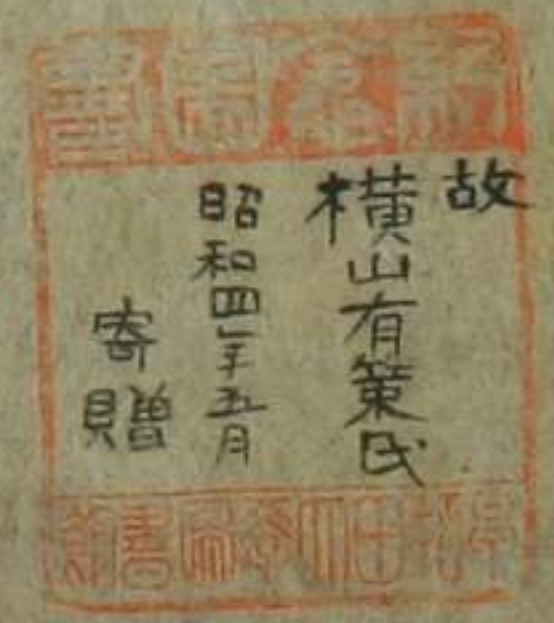 念圖書
故
横山有策氏
昭和四年五月
寄贈
早稻田大學圖書館